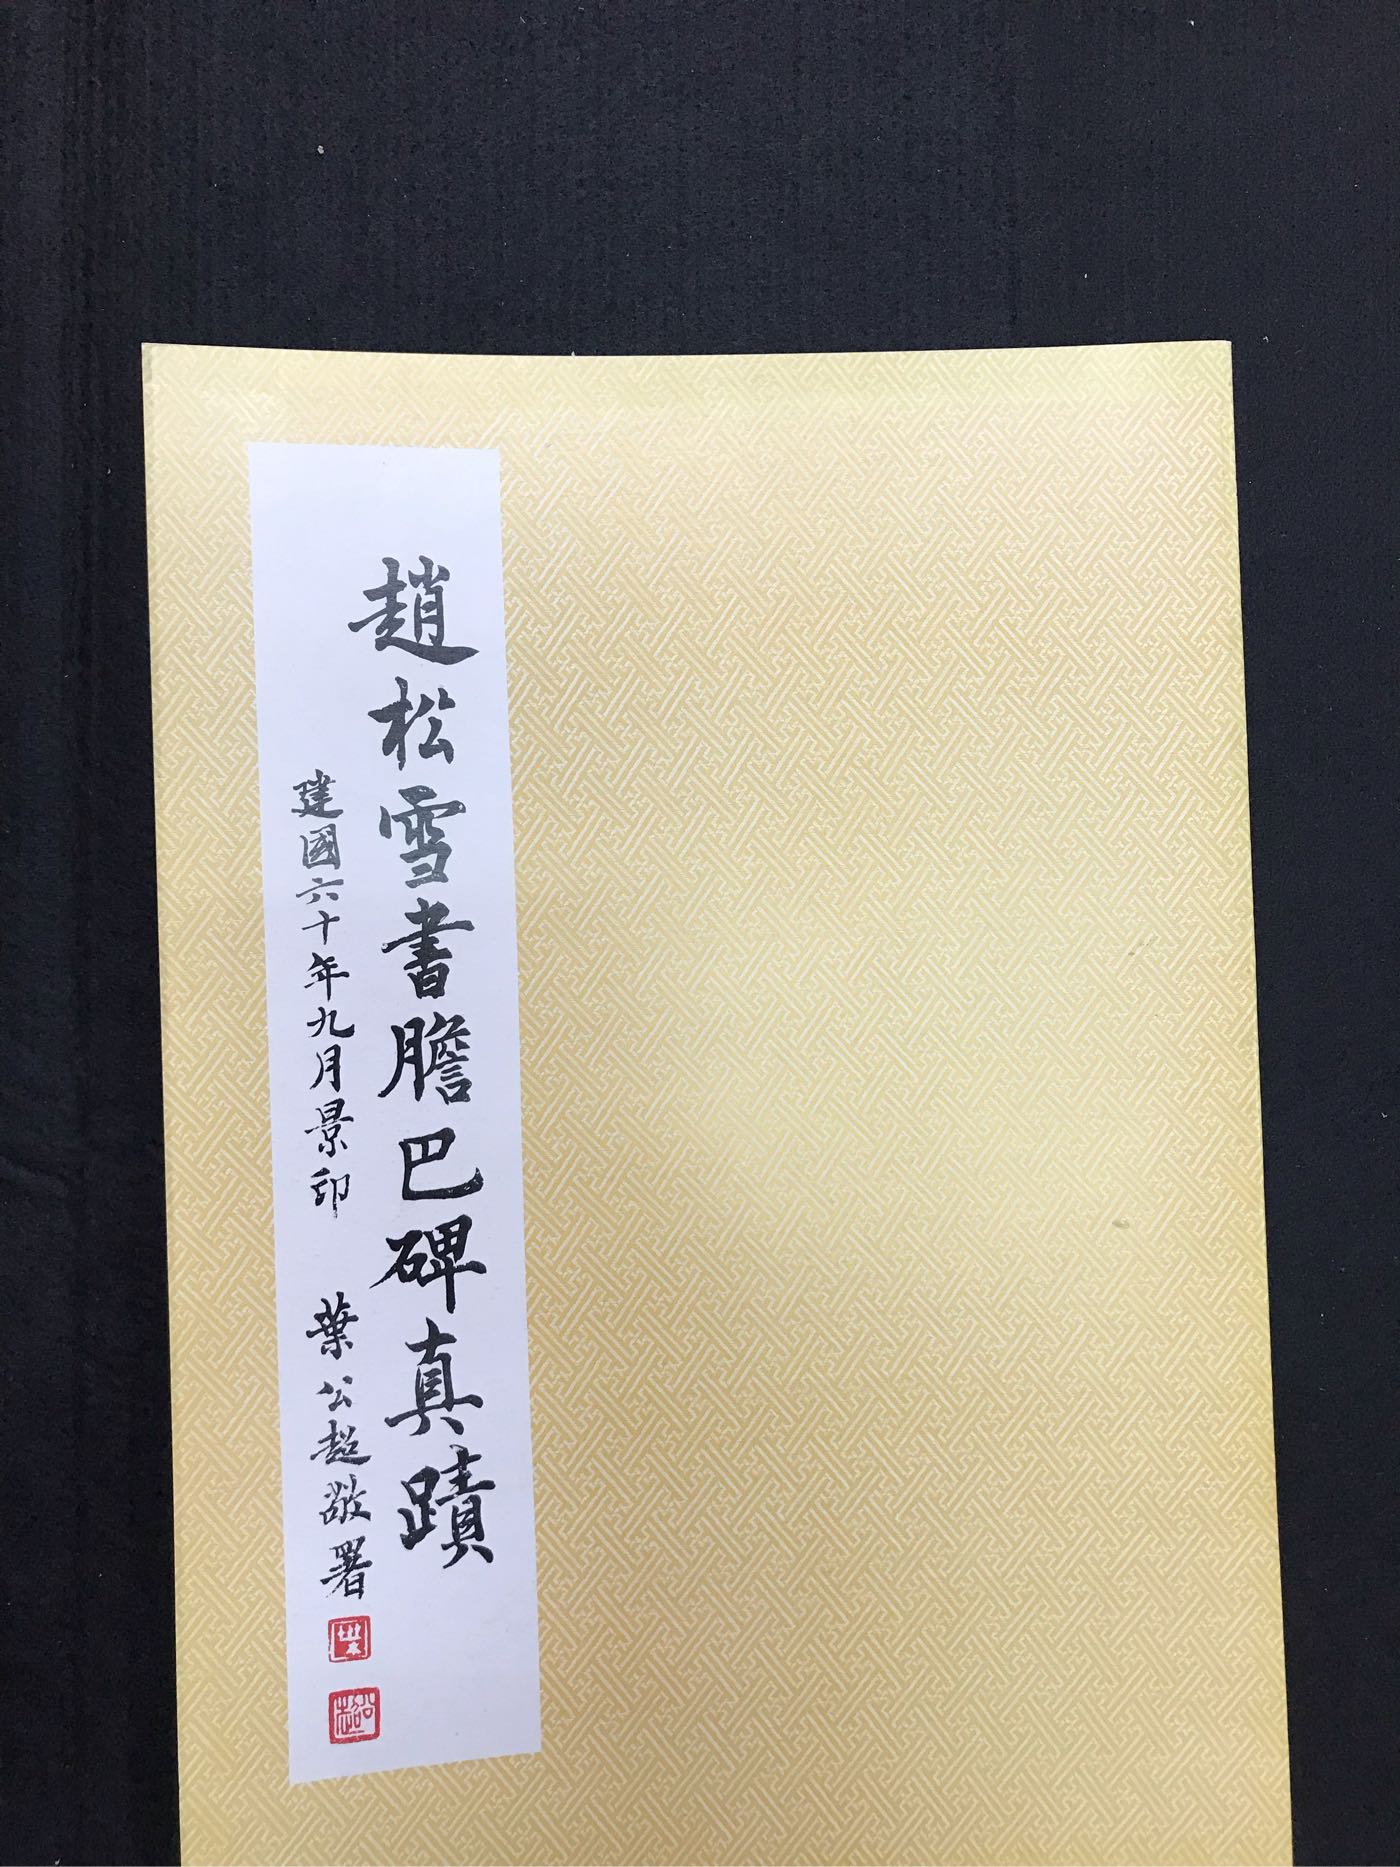 趙松雪書膽巴碑真蹟
建國六十年九月景印 葉公超敬署